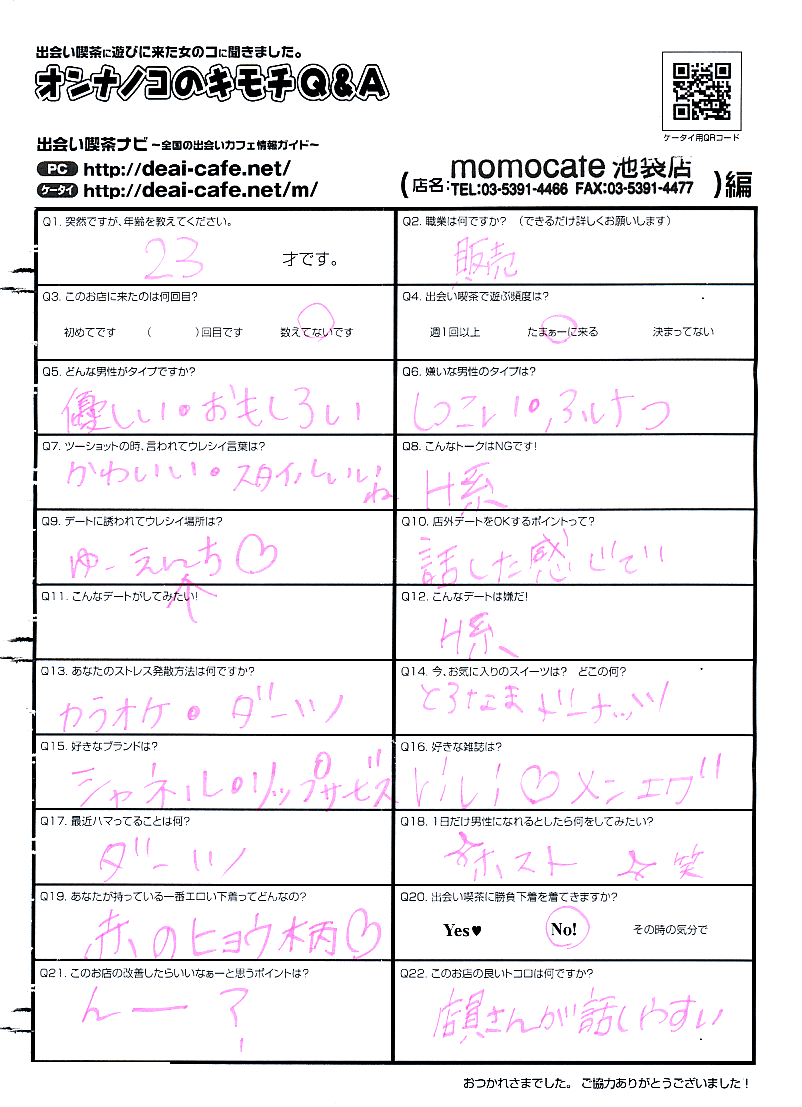 出会い喫茶に遊びに来た女のコに聞きました。
オンナノコのキモチQ&A
ケータイ用QRコード
出会い喫茶ナビ~全国の出会いカフェ情報ガイド~
PC http://deai-cafe.net/
ケータイ http://deai-cafe.net/m/
(店名: momocafe 池袋店 )編
TEL:03-5391-4466 FAX:03-5391-4477
Q1. 突然ですが、年齢を教えてください。
23 才です。
Q2. 職業は何ですか? (できるだけ詳しくお願いします)
販売
Q3. このお店に来たのは何回目?
初めてです ( )回目です 数えてないです
Q4. 出会い喫茶で遊ぶ頻度は?
週1回以上 たまぁーに来る 決まってない
Q5. どんな男性がタイプですか?
優しい・おもしろい
Q6. 嫌いな男性のタイプは?
しつこい・ふけつ
Q7. ツーショットの時、言われてウレシイ言葉は?
かわいい・スタイルいいね
Q8. こんなトークはNGです!
H系
Q9. デートに誘われてウレシイ場所は?
ゆーえんち♡
Q10. 店外デートをOKするポイントって?
話した感じでい
Q11. こんなデートがしてみたい!
↑
Q12. こんなデートは嫌だ!
H系
Q13. あなたのストレス発散方法は何ですか?
カラオケ・ダーツ
Q14. 今、お気に入りのスイーツは? どこの何?
とろなまドーナッツ
Q15. 好きなブランドは?
シャネル・リップサービス
Q16. 好きな雑誌は?
ViVi♡メンエグ
Q17. 最近ハマってることは何?
ダーツ
Q18. 1日だけ男性になれるとしたら何をしてみたい?
☆ホスト☆笑
Q19. あなたが持っている一番エロい下着ってどんなの?
赤のヒョウ柄♡
Q20. 出会い喫茶に勝負下着を着てきますか?
Yes♥ No! その時の気分で
Q21. このお店の改善したらいいなぁーと思うポイントは?
んー?
Q22. このお店の良いトコロは何ですか?
店員さんが話しやすい
おつかれさまでした。ご協力ありがとうございました!